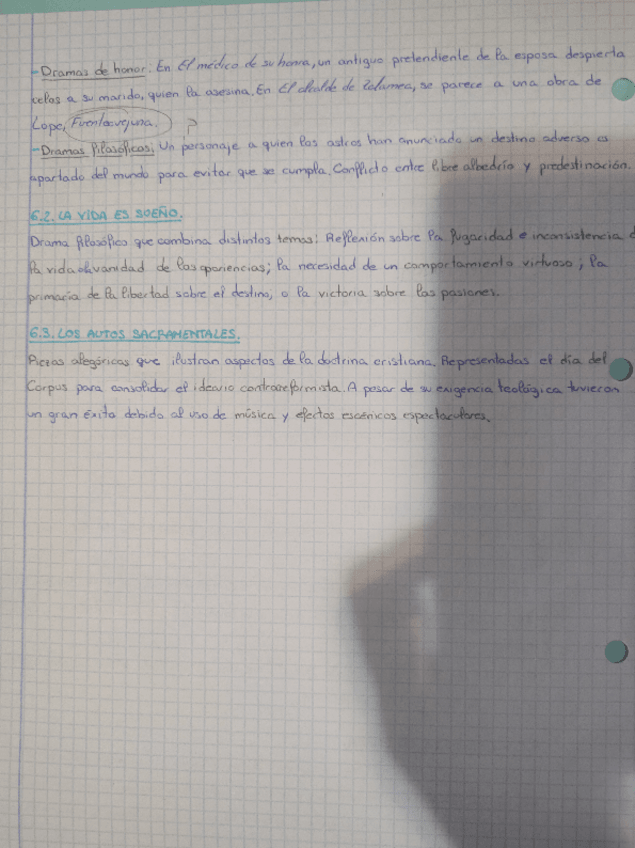 -Dramas de honor. En El médico de su honra, un antiguo pretendiente de la esposa despierta
celos a su marido, quien la asesina. En El alcalde de Zalamea, se parece a una obra de
Lope, Fuenteovejuna. ?
-Dramas filosóficos. Un personaje a quien los astros han anunciado un destino adverso es
apartado del mundo para evitar que se cumpla. Conflicto entre libre albedrío y predestinación.
6.2. LA VIDA ES SUEÑO.
Drama filosófico que combina distintos temas: Reflexión sobre la fugacidad e inconsistencia d
la vida o la vanidad de las apariencias; la necesidad de un comportamiento virtuoso; la
primacía de la libertad sobre el destino, o la victoria sobre las pasiones.
6.3. LOS AUTOS SACRAMENTALES.
Piezas alegóricas que ilustran aspectos de la doctrina cristiana. Representadas el día del
Corpus para consolidar el ideario contrareformista. A pesar de su exigencia teológica tuvieron
un gran éxito debido al uso de música y efectos escénicos espectaculares.